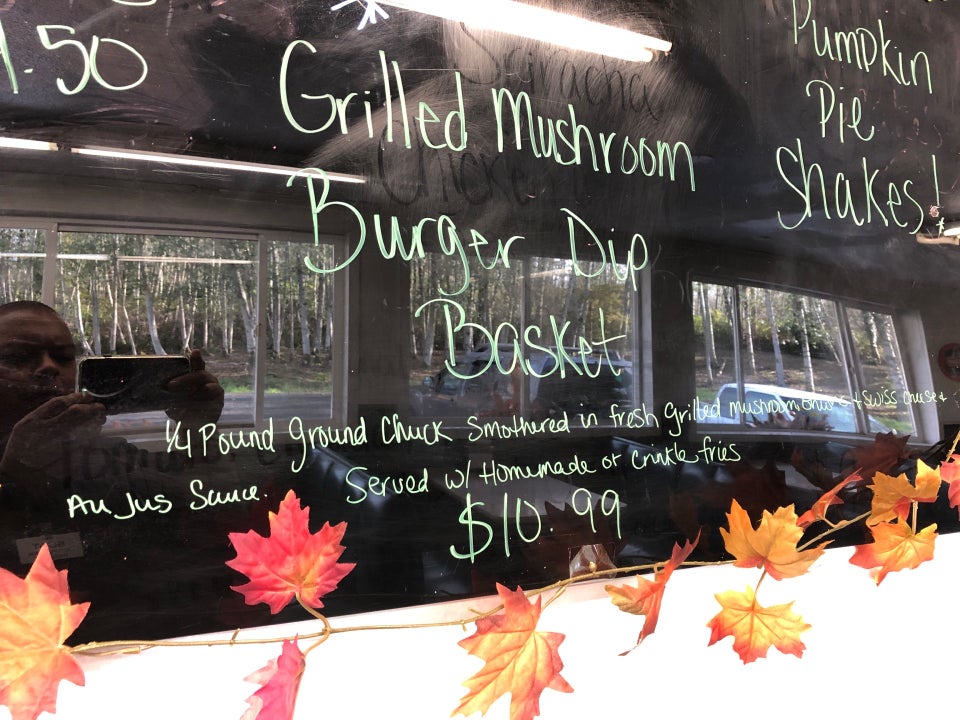 1.50
Grilled Mushroom
Burger Dip
Basket
1/4 Pound Ground Chuck Smothered in fresh grilled mushroom onions + Swiss cheese +
Au Jus Sauce.
Served w/ Homemade or Crinkle fries
$10.99
Pumpkin
Pie
Shakes!
Sriracha
Chicken